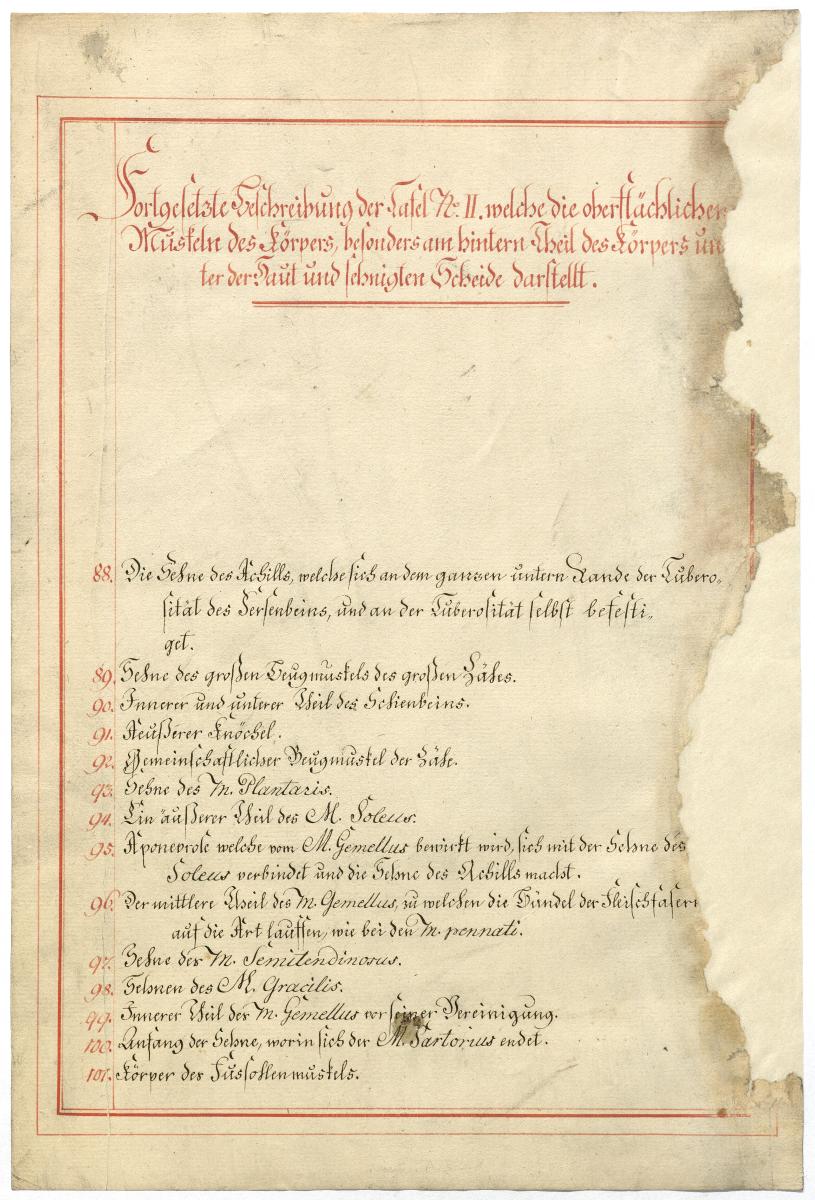 Fortgesetzte Beschreibung der Tafel No. II. welche die oberflächlichen
Muskeln des Körpers, besonders am hintern Theil des Körpers un
ter der Haut und sehnigten Scheide darstellt.
88. Die Sehne des Achills, welche sich an dem ganzen untern Rande der Tubero-
sität des Fersenbeins, und an der Tuberosität selbst befesti-
get.
89. Sehne des großen Beugmuskels des großen Zähes.
90. Innerer und unterer Theil des Schienbeins.
91. Aeußerer Knöchel.
92. Gemeinschaftlicher Beugmuskel der Zähe.
93. Sehne des M. Plantaris.
94. Ein äußerer Theil des M. Soleus.
95. Aponevrose welche vom M. Gemellus bewirkt wird, sich mit der Sehne des
Soleus verbindet und die Sehne des Achills macht.
96. Der mittlere Theil des M. Gemellus, zu welchen die Bündel der Fleischfasern
auf die Art lauffen, wie bei den M. pennati.
97. Sehne des M. Semitendinosus.
98. Sehnen des M. Gracilis.
99. Innerer Theil der M. Gemellus vor seiner Vereinigung.
100. Anfang der Sehne, worin sich der M. Sartorius endet.
101. Körper des Fussohlenmuskels.